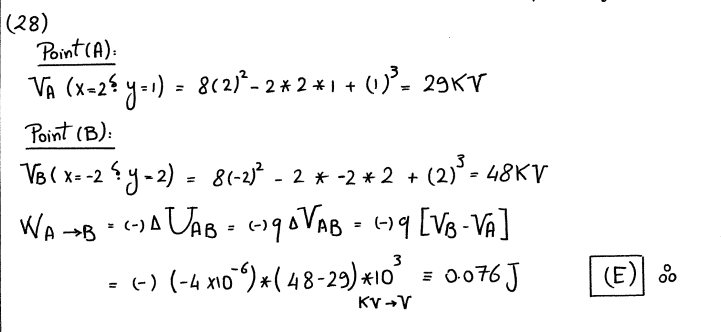 (28)
Point (A):
V_A (x=2 & y=1) = 8(2)² - 2 * 2 * 1 + (1)³ = 29KV
Point (B):
V_B (x=-2 & y=2) = 8(-2)² - 2 * -2 * 2 + (2)³ = 48KV
W_A→B = (-) Δ U_AB = (-) q ΔV_AB = (-) q [V_B - V_A]
= (-) (-4 x10⁻⁶) * (48-29) * 10³ ≡ 0.076 J (E)
KV→V